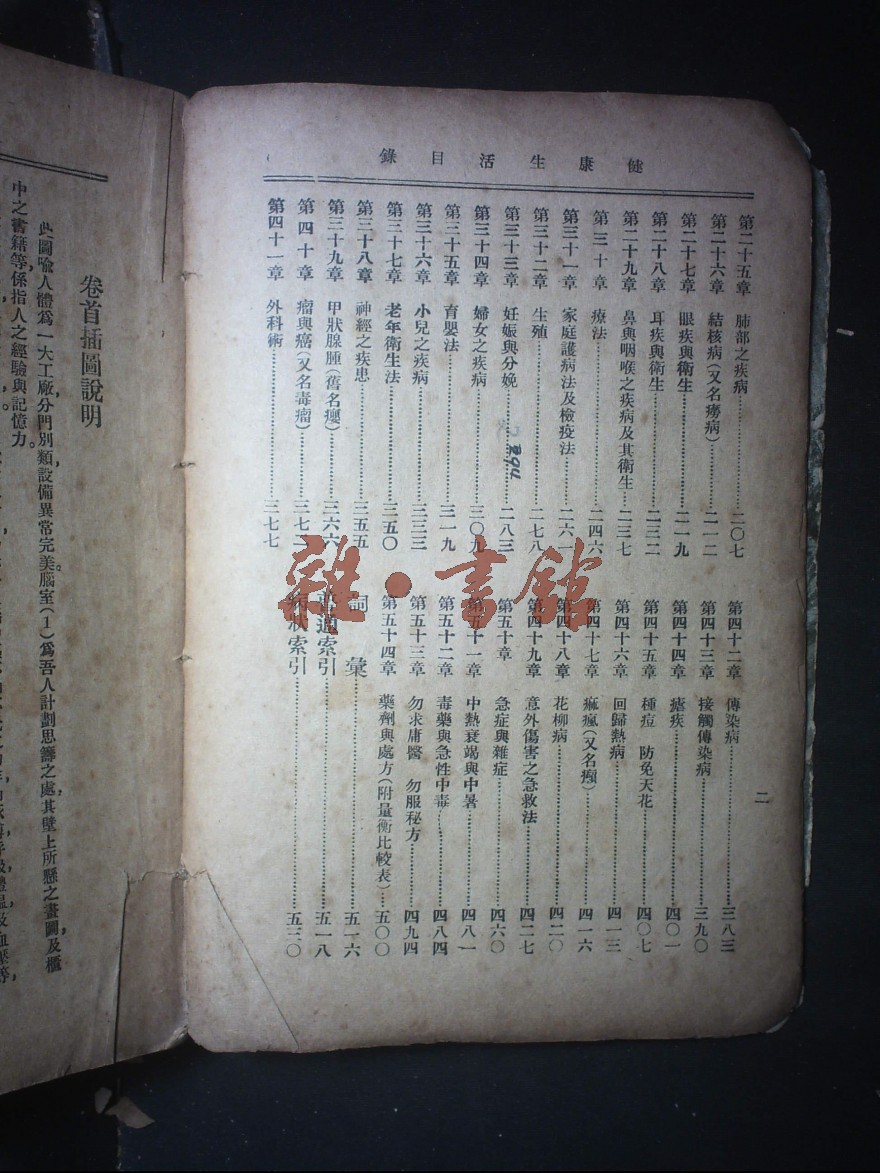 健康生活目錄
第二十五章 肺部之疾病…………二〇七
第二十六章 結核病(又名癆病)…………二一二
第二十七章 眼疾與衛生…………二一九
第二十八章 耳疾與衛生…………二三二
第二十九章 鼻與咽喉之疾病及其衛生…………二三七
第三十章 療法…………二四六
第三十一章 家庭護病法及檢疫法…………二六一
第三十二章 生殖…………二七八
第三十三章 妊娠與分娩…………二八三
294
第三十四章 婦女之疾病…………三〇九
第三十五章 育嬰法…………三一九
第三十六章 小兒之疾病…………三三三
第三十七章 老年衛生法…………三五〇
第三十八章 神經之疾患…………三五五
第三十九章 甲狀腺腫(舊名癭)…………三六六
第四十章 瘤與癌(又名毒瘤)…………三七二
第四十一章 外科術…………三七七
第四十二章 傳染病…………三八三
第四十三章 接觸傳染病…………三九〇
第四十四章 瘧疾…………四〇一
第四十五章 種痘 防免天花…………四〇七
第四十六章 回歸熱病…………四一三
第四十七章 痲瘋(又名癩)…………四一六
第四十八章 花柳病…………四二〇
第四十九章 意外傷害之急救法…………四二七
第五十章 急症與雜症…………四六〇
第五十一章 中熱衰竭與中暑…………四八一
第五十二章 毒藥與急性中毒…………四八四
第五十三章 勿求庸醫 勿服秘方…………四九四
第五十四章 藥劑與處方(附量衡比較表)…………五〇〇
詞彙…………五一六
普通索引…………五一八
病狀索引…………五三〇
二
卷首插圖說明
此圖喻人體爲一大工廠,分門別類,設備異常完美。腦室(1)爲吾人計劃思籌之處,其壁上所懸之畫圖及櫃
中之書籍等,係指人之經驗與記憶力。
雜·書館